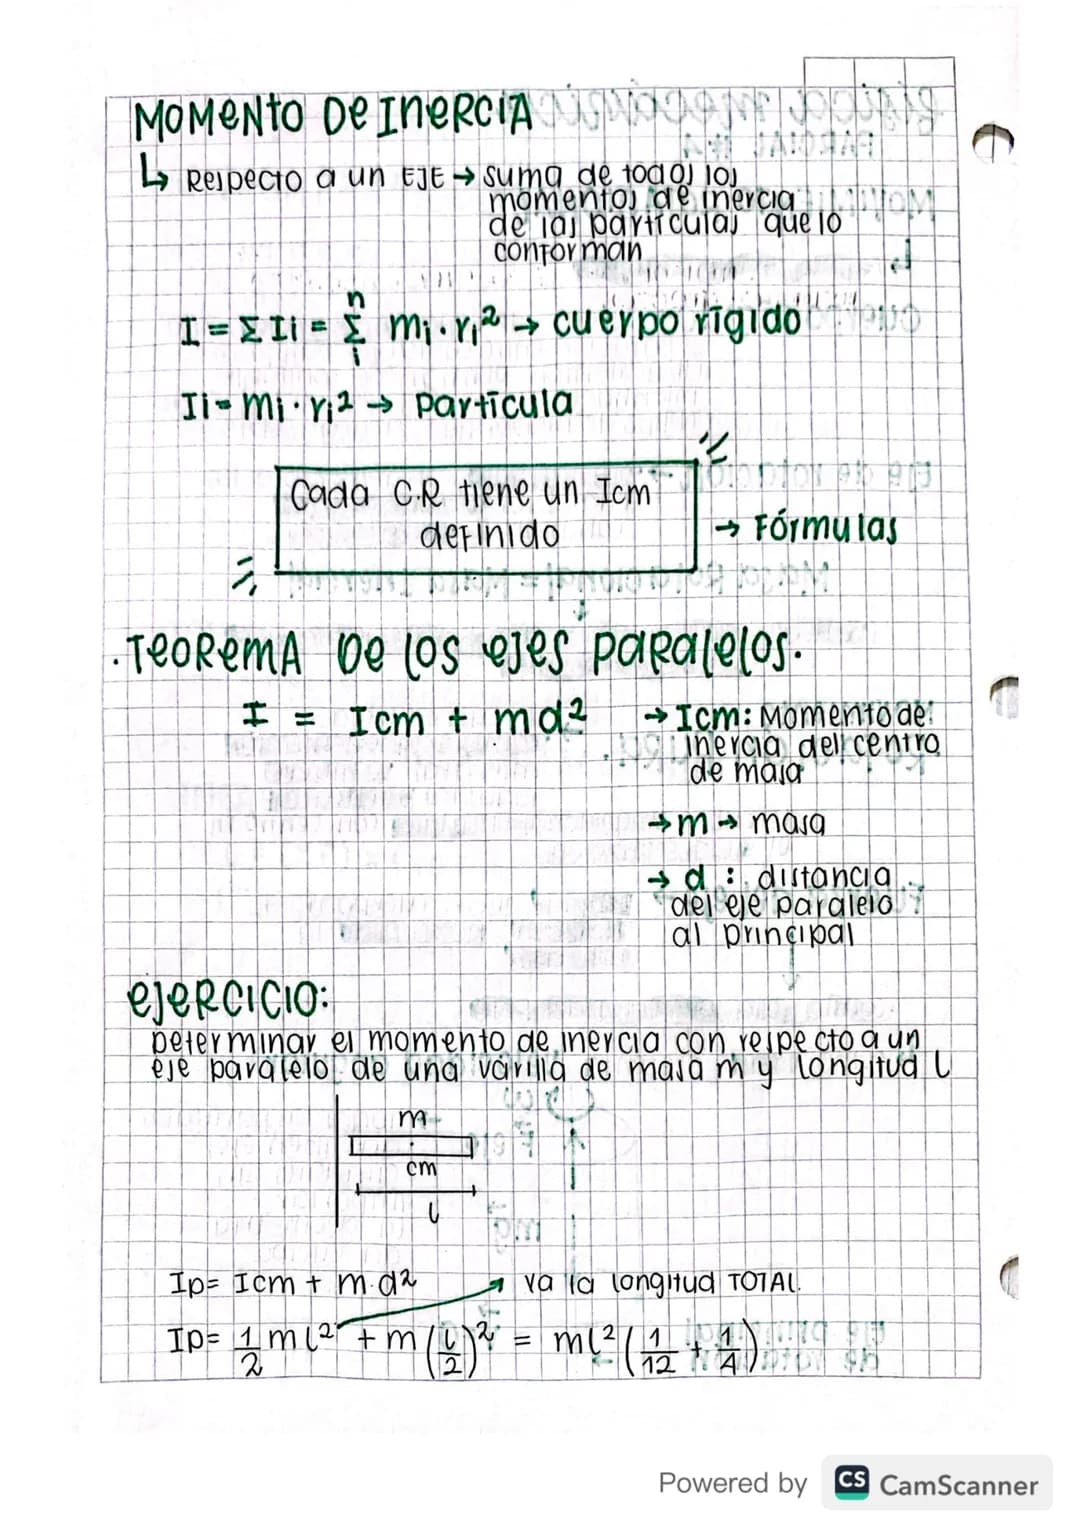 MOMENTO DE INERCIA
↳ Respecto a un EJE → suma de todos los
momentos de inercia
de las partículas que lo
conforman
I = Σ Ii = Σ mi · ri² → cuerpo rígido
n
i
Ii = mi · ri² → Partícula
Cada C.R tiene un Icm
definido
→ Fórmulas
· TEOREMA DE LOS EJES PARALELOS.
I = Icm + md²
→ Icm: Momento de
inercia del centro
de masa
→ m → masa
→ d : distancia
del eje paralelo
al principal
EJERCICIO:
Determinar el momento de inercia con respecto a un
eje paralelo de una varilla de masa m y longitud L
m
cm
L
Ip= Icm + m·d²
va la longitud TOTAL.
Ip= 1/2 mL² + m (L/2)² = mL² (1/12 + 1/4)
Powered by CS CamScanner